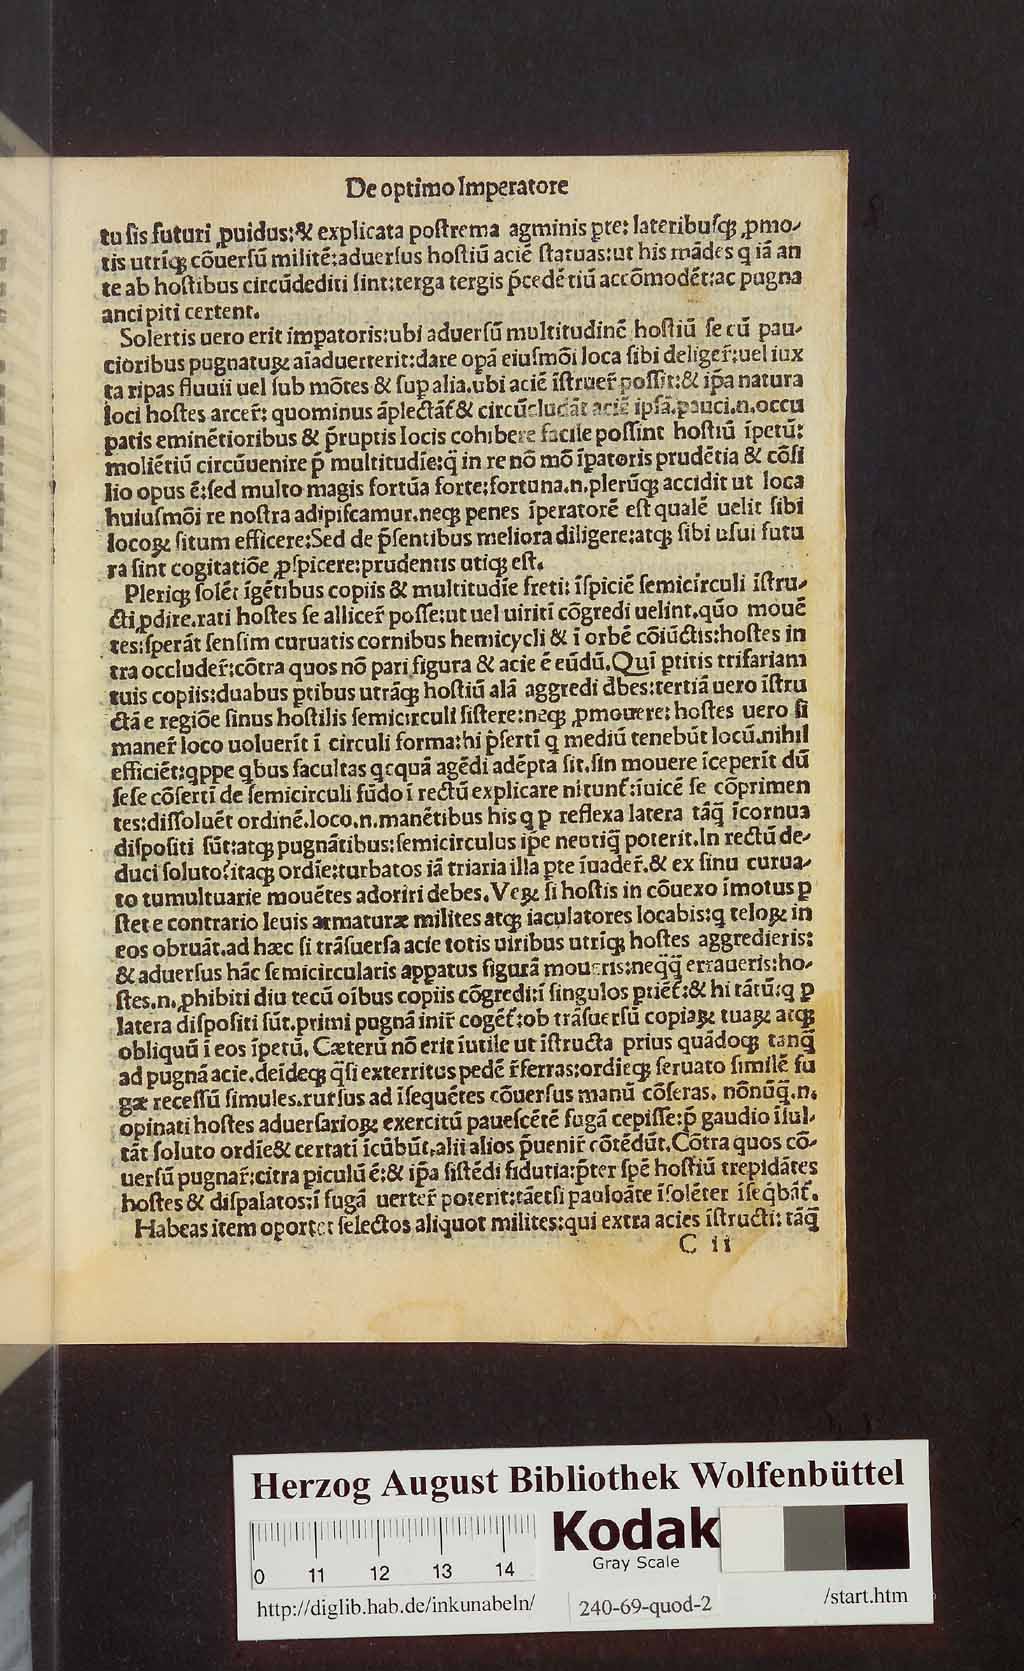 De optimo Imperatore
tu sis futuri ꝓuidus:& explicata postrema agminis ꝑte: lateribusq; ꝓmo-
tis utriq; cōuersū militē:aduersus hostiū aciē statuas:ut his mādes q iā an
te ab hostibus circūdediti sint:terga tergis p̄cedētiū accōmodēt:ac pugna
ancipiti certent.
Solertis uero erit impatoris:ubi aduersū multitudinē hostiū se cū pau-
cioribus pugnatuꝝ aīaduerterit:dare opā eiusmōi loca sibi deliger̄:uel iux
ta ripas fluuii uel sub mōtes & suꝑ alia.ubi aciē īstruer̄ possit:& ip̄a natura
loci hostes arcer̄: quominus āplectāt̄ & circūcludāt aciē ipsā.pauci.n.occu
patis eminētioribus & p̄ruptis locis cohibere facile possint hostiū īpetū:
moliētiū circūuenire p̄ multitudīe:q̄ in re nō mō īpatoris prudētia & cōsi
lio opus ē:sed multo magis fortūa forte:fortuna.n.plerūq; accidit ut loca
huiusmōi re nostra adipiscamur.neq; penes īperatorē est qualē uelit sibi
locoꝝ situm efficere:Sed de p̄sentibus meliora diligere:atq; sibi usui futu
ra sint cogitatiōe ꝓspicere:prudentis utiq; est.
Pleriq; solēt īgētibus copiis & multitudīe freti: īspiciē semicirculi īstru-
cti ꝓdire.rati hostes se allicer̄ posse:ut uel uiriti cōgredi uelint.quō mouē
tes:sperāt sensim curuatis cornibus hemicycli & ī orbē cōiūctis:hostes in
tra occluder̄:cōtra quos nō pari figura & acie ē eūdū.Quī ꝑtitis trifariam
tuis copiis:duabus ꝑtibus utrāq; hostiū alā aggredi dbes:tertiā uero īstru
ctā e regiōe sinus hostilis semicirculi sistere:neq; ꝓmouere: hostes uero si
maner̄ loco uoluerīt ī circuli forma:hi p̄serti q mediū tenebūt locū.nihil
efficiēt:qppe qbus facultas qcquā agēdi adēpta sit.sin mouere īceperit dū
sese cōserti de semicirculi fūdo ī rectū explicare nitunt̄:īuicē se cōprimen
tes:dissoluēt ordinē.loco.n.manētibus his q ꝑ reflexa latera tāq̄ īcornua
dispositi sūt:atq; pugnātibus:semicirculus ip̄e neutiq̄ poterit.In rectū de-
duci soluto?itaq; ordīe:turbatos iā triaria illa ꝑte īuader̄.& ex sinu curua-
to tumultuarie mouētes adoriri debes.Veꝝ si hostis in cōuexo īmotus ꝑ
stet e contrario leuis armaturæ milites atq; iaculatores locabis:q teloꝝ in
eos obruāt.ad hæc si trāsuersa acie totis uiribus utriq; hostes aggredieris:
& aduersus hāc semicircularis apꝑatus figurā moueris:neq̄q̄ erraueris:ho-
stes.n.ꝓhibiti diu tecū oībus copiis cōgredi:ī singulos ꝑtiēt̄:& hi tātū:q ꝑ
latera dispositi sūt.primi pugnā inir̄ cogēt̄:ob trāsuersū copiaꝝ tuaꝝ atq;
obliquū ī eos īpetū. Cæterū nō erit īutile ut īstructa prius quādoq; tanq̄
ad pugnā acie.deīdeq; q̄si exterritus pedē r̄ferras:ordīeq; seruato similē fu
gæ recessū simules.rursus ad īsequētes cōuersus manū cōseras. nōnūq̄.n.
opinati hostes aduersarioꝝ exercitū pauescētē fugā cepisse:p̄ gaudio īsul-
tāt soluto ordīe& certati īcūbūt.alii alios p̄uenir̄ cōtēdūt.Cōtra quos cō-
uersū pugnar̄:citra piculū ē:& ip̄a sistēdi fidutia:p̄ter spē hostiū trepidātes
hostes & dispalatos:ī fugā uerter̄ poterit:tāetsi pauloāte īsolēter īseq̄bāt̄.
Habeas item oportet selectos aliquot milites:qui extra acies īstructi: tāq̄
C ii
Herzog August Bibliothek Wolfenbüttel
Kodak
Gray Scale
0 11 12 13 14
http://diglib.hab.de/inkunabeln/
240-69-quod-2
/start.htm